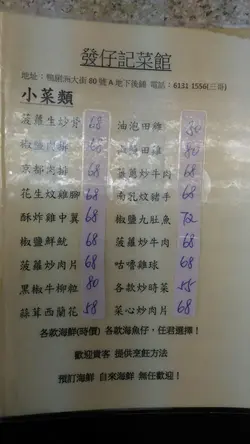 發仔記菜館
地址：鴨脷洲大街 80 號 A 地下後鋪 電話：6131 1556(三哥)
小菜類
菠蘿生炒骨 68 油泡田雞
椒鹽 田雞 80
京都肉排 68 薑蔥炒牛肉 68
花生炆雞腳 68 南乳炆豬手 68
酥炸雞中翼 68 椒鹽九肚魚 72
椒鹽鮮魷 68 菠蘿炒牛肉 68
菠蘿炒肉片 68 咕嚕雞球 68
黑椒牛柳粒 80 各款炒時菜 55
蒜茸西蘭花 58 菜心炒肉片 68
各款海鮮(時價) 各款海魚仔，任君選擇！
歡迎貴客 提供烹飪方法
預訂海鮮 自來海鮮 無任歡迎！